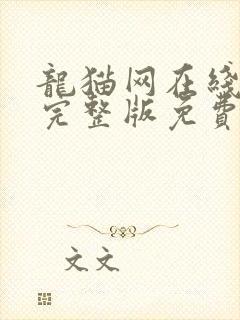 龍猫网在线
完整版免費
文文